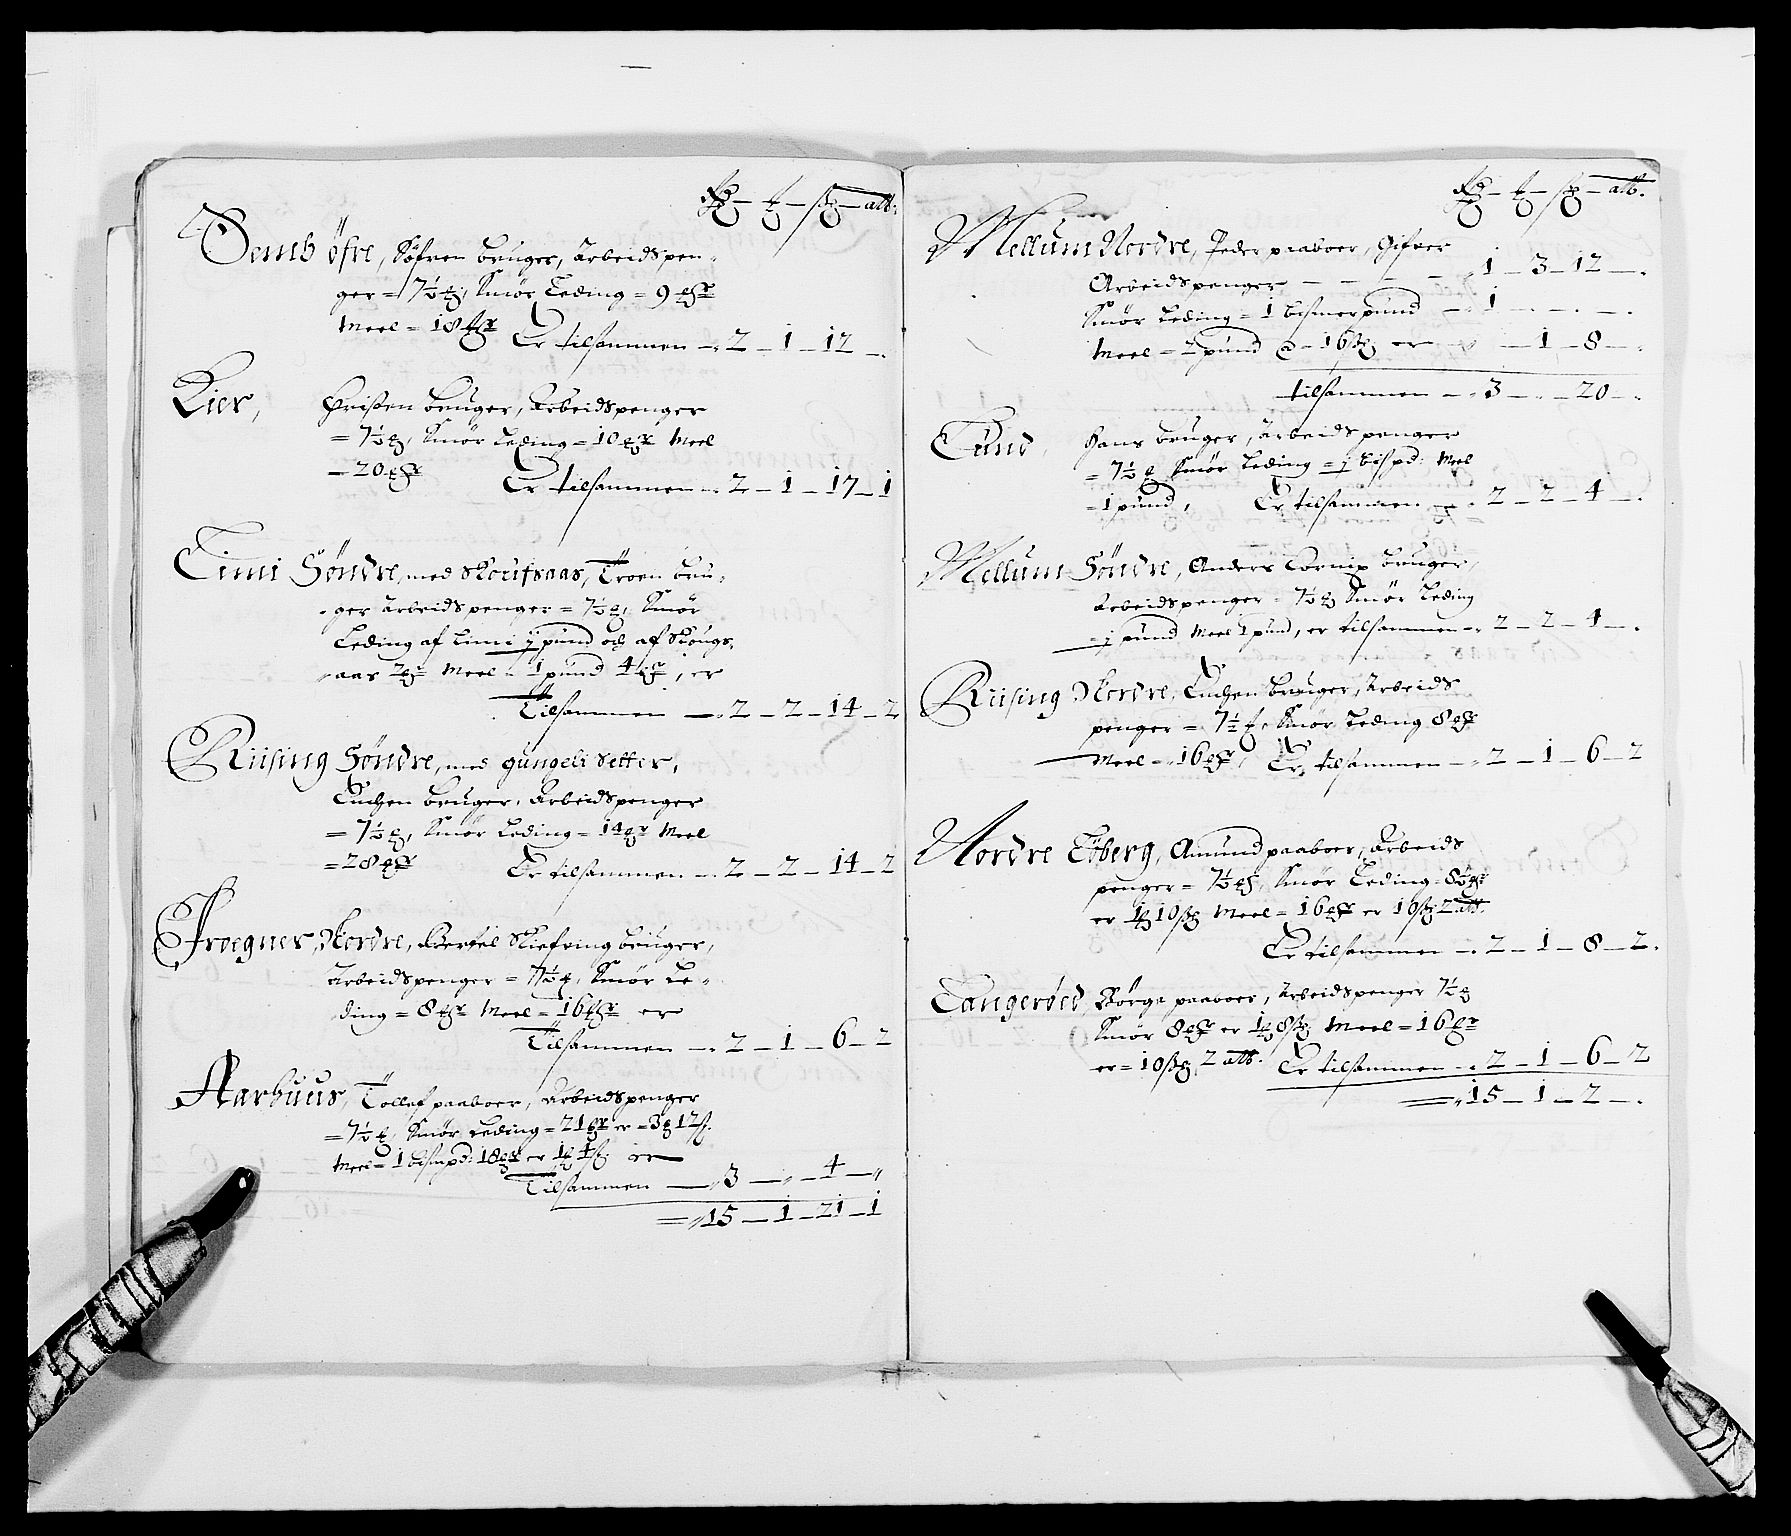 Rdr — ort — sk — alb:
Semb öfre, Söfren bruger, Arbeidspen-
ger = 7½ sk, Smör Leding = 9 mr
Meel = 18 mr Er tilsammen — 2 — 1 — 12 —
Lier, Christen bruger, Arbeidspenger
= 7½ sk, Smör Leding = 10 mr Meel
= 20 mr Er tilsammen — 2 — 1 — 17 — 1
Limi Söndre, med Skoufsaas, Troen bru-
ger Arbeidspenger = 7½ sk, Smör
Leding af Limi j pund och af Skougs-
aas 2 mr Meel = 1 pund 4 mr, er
Tilsammen — 2 — 2 — 14 — 2
Riising Söndre, med gungeli Setter,
Luchen bruger, Arbeidspenger
= 7½ sk, Smör Leding = 14 mr Meel
= 28 mr Er tilsammen — 2 — 2 — 14 — 2
Froegner, Nordre, Bertel Skiefving bruger,
Arbeidspenger = 7½ sk, Smör Le-
ding = 8 mr Meel = 16 mr er
Tilsammen — 2 — 1 — 6 — 2
Aarhuus, Tollef paaboer, Arbeidspenger
= 7½ sk, Smör Leding = 21 mr er = 3 12 s.
Meel = 1 bismpd: 18 mr er 1 4 s. er
Tilsammen — 3 — „ — 4 — „
= 15 — 1 — 21 — 1
Rdr — ort — sk — alb.
Mellum Nordre, Peder paaboer, Gifver
Arbeidspenger — — — 1 — 3 — 12 —
Smör Leding = 1 bismerpund — 1 — . — . — .
Meel = 2 pund @ — 16 sk er — „ — 1 — 8 —
tilsammen — 3 — „ — 20 —
Lund, Hans bruger, Arbeidspenger
= 7½ sk Smör Leding = j bispd: Meel
= 1 pund, Er tilsammen — 2 — 2 — 4 — .
Mellum Söndre, Anders bruger,
Arbeidspenger = 7½ sk Smör Leding
= j pund Meel 1 pund, er tilsammen — 2 — 2 — 4 — .
Riising Nordre, Luchen bruger, Arbeids
penger = 7½ sk, Smör Leding 8 mr
Meel = 16 mr, Er tilsammen — 2 — 1 — 6 — 2
Nordre Töberg, Amund paaboer, Arbeids
penger = 7½ sk, Smör Leding = 8½ mr
er 1 10 sk Meel = 16 mr er 10 sk 2 alb.
Er tilsammen — 2 — 1 — 8 — 2.
Tangeröed, Börge paaboer, Arbeidspenger 7½ sk
Smör 8 mr er 1 8 sk Meel = 16 mr
er = 10 sk 2 alb. Er tilsammen — 2 — 1 — 6 — 2
= 15 — 1 — 2 — .